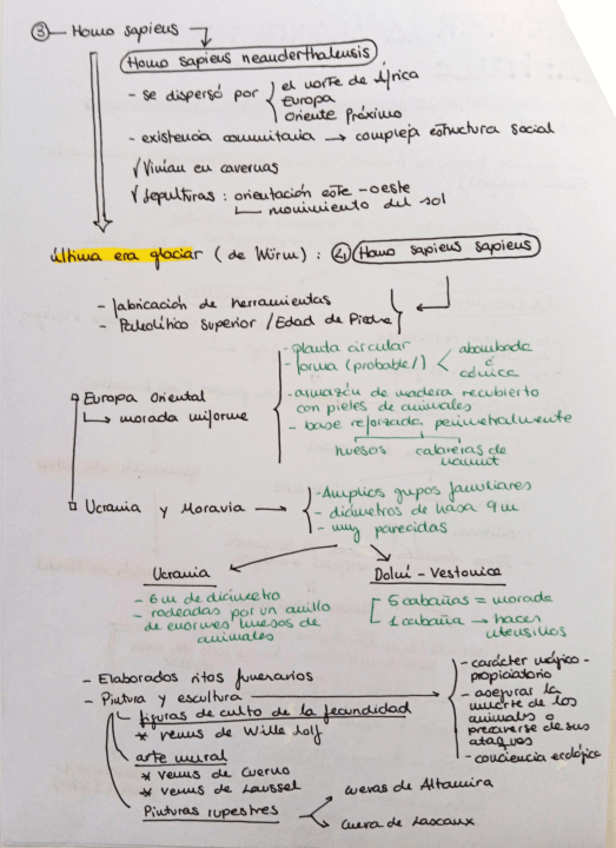 ③ Homo sapiens
Homo sapiens neanderthalensis
- se dispersó por
el norte de África
Europa
Oriente Próximo
- existencia comunitaria → compleja estructura social
√ Vivían en cavernas
√ Sepulturas : orientación este-oeste
movimiento del sol
última era glaciar (de Würm) : ④ Homo sapiens sapiens
- fabricación de herramientas
- Paleolítico Superior / Edad de Piedra
Europa Oriental
↳ morada uniforme
- planta circular
- forma (probable/)
abombada
ó
cónica
- armazón de madera recubierto
con pieles de animales
- base reforzada perimetralmente
huesos
cabezeras de
mamut
Ucrania y Moravia →
- Amplios grupos familiares
- diámetros de hasa 9m
- muy parecidas
Ucrania
- 6m de diámetro
- rodeadas por un anillo
de enormes huesos de
animales
Dolní - Vestonice
5 cabañas = morada
1 cabaña → hacer
utensilios
- Elaborados ritos funerarios
- Pintura y escultura
- carácter mágico-
propiciatorio
- asegurar la
muerte de los
animales o
de sus
ataques
- conciencia ecológica
figuras de culto de la fecundidad
* venus de Willendolf
arte mural
* venus de Cuerno
* venus de Laussel
Pinturas rupestres
cuevas de Altamira
cueva de Lascaux